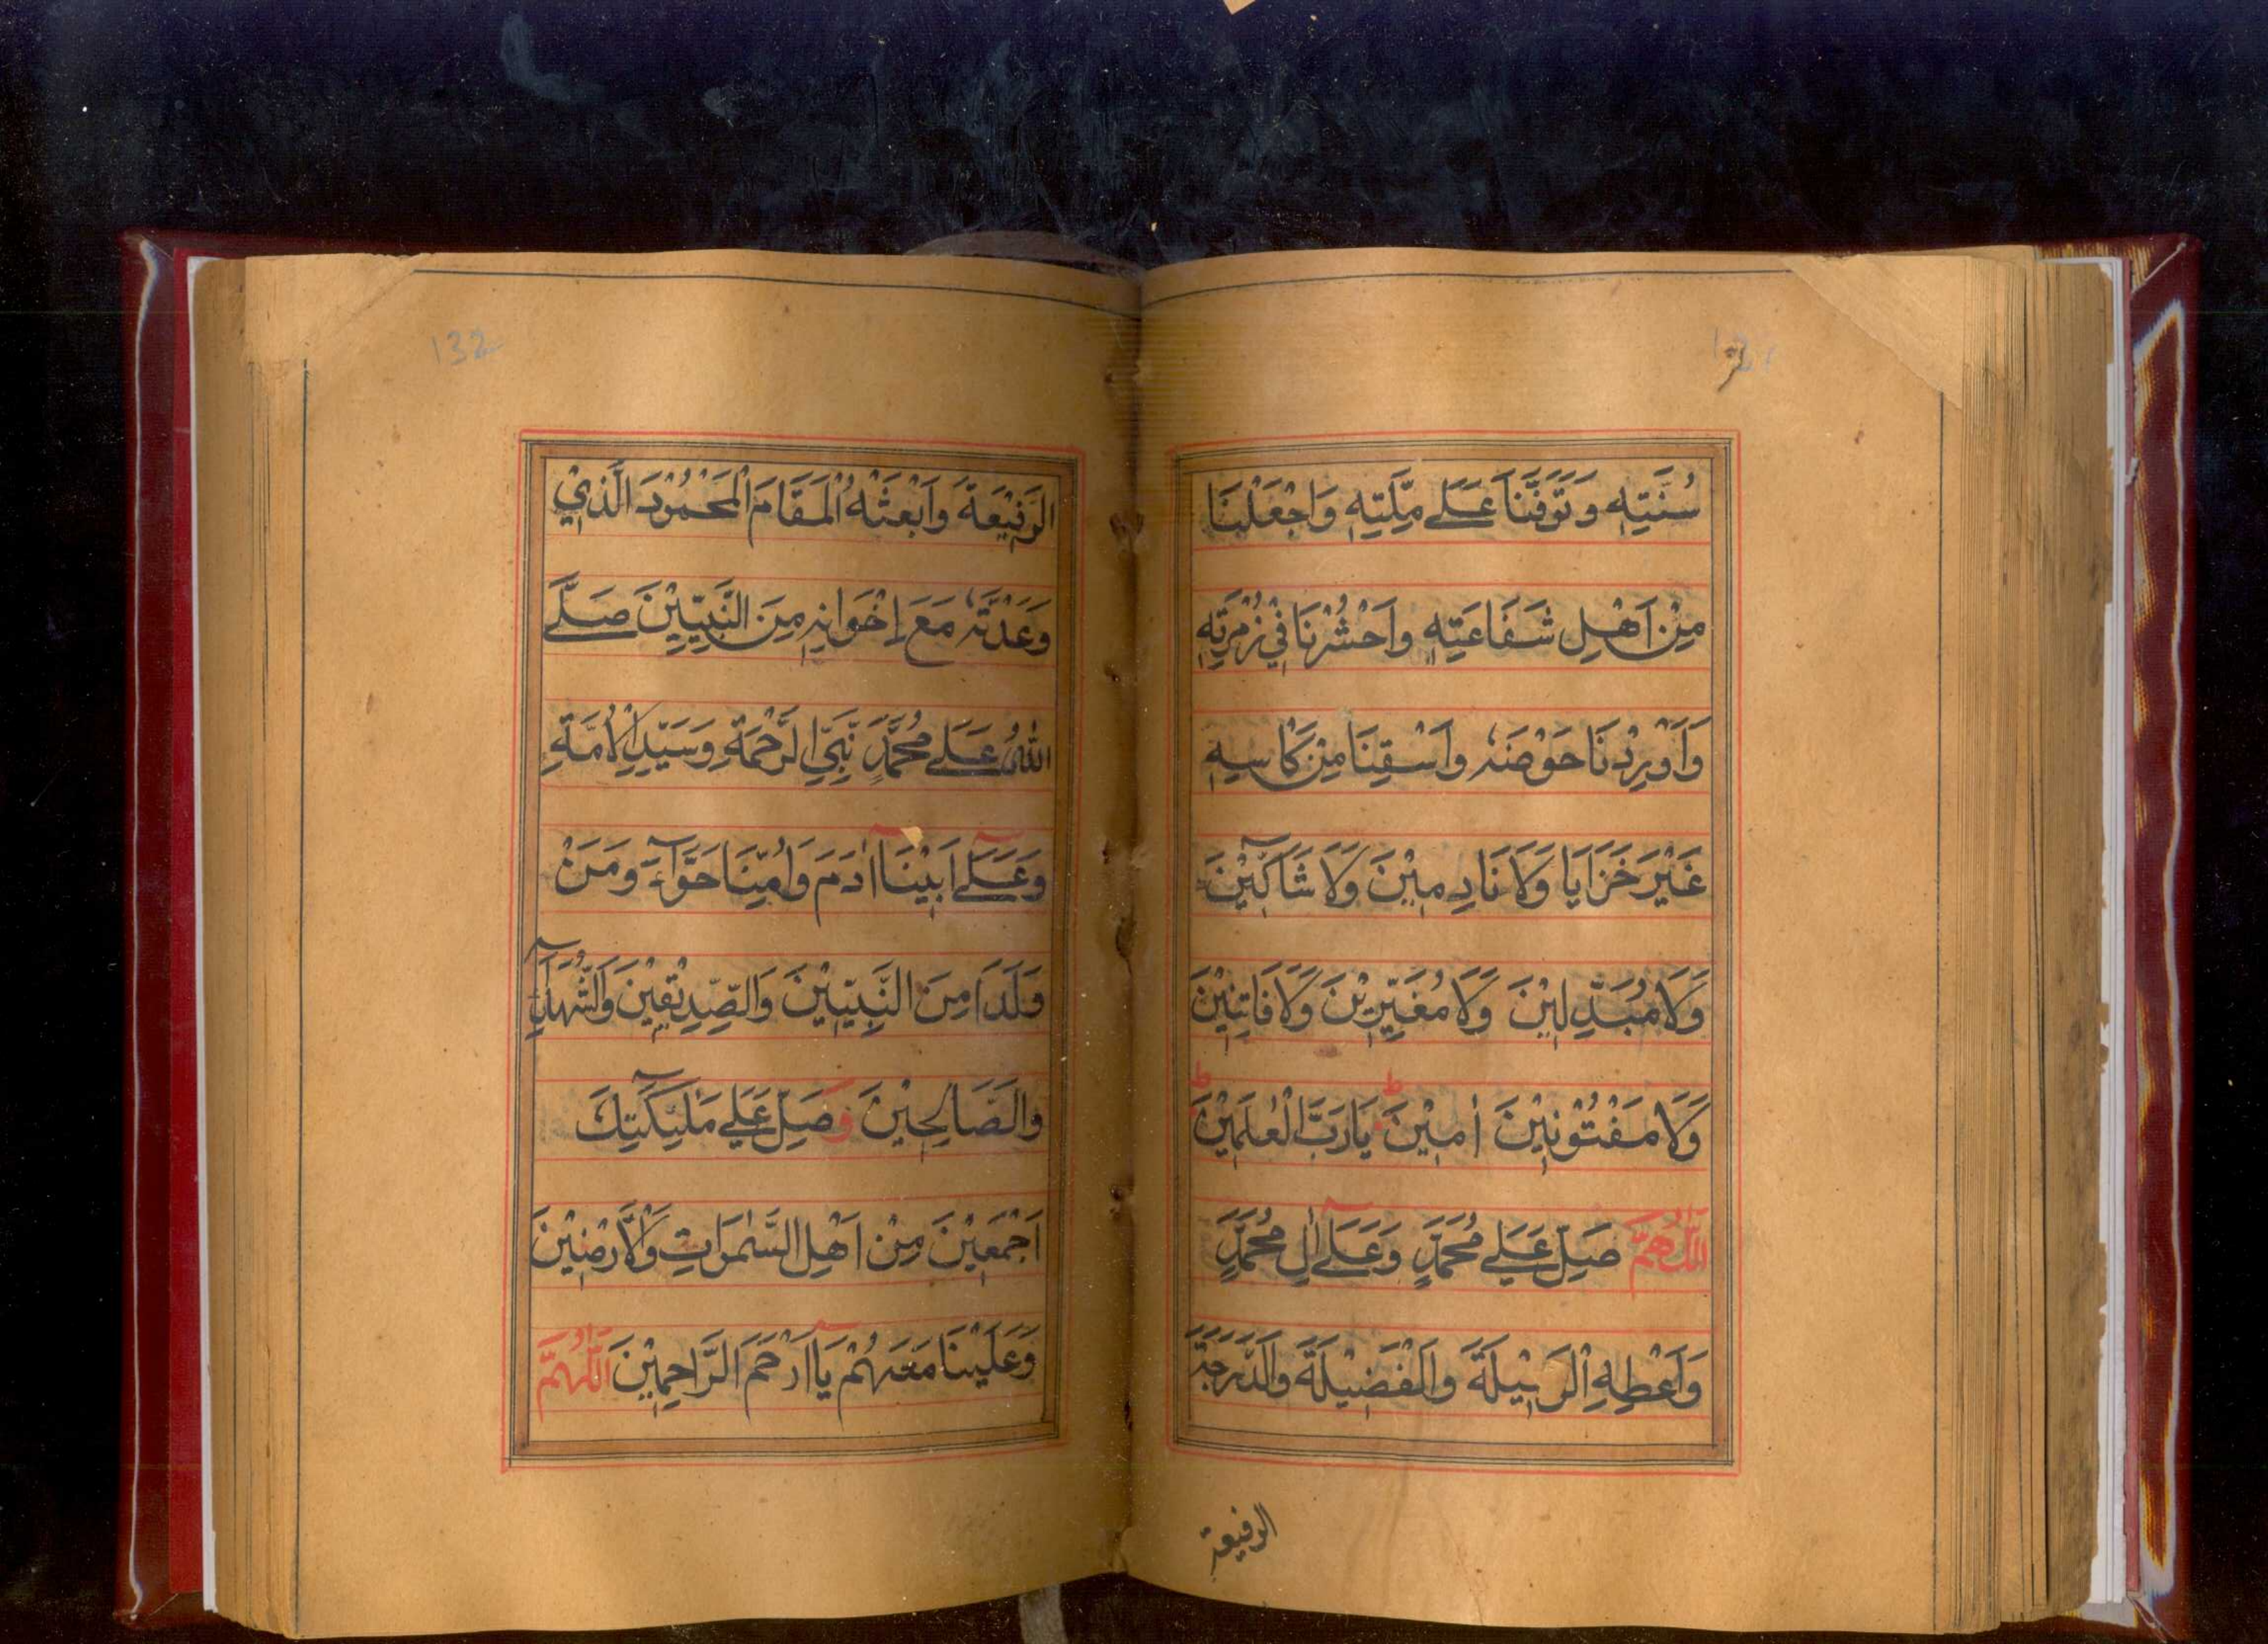 سُنَّتِهٖ وَتَوَفَّنَا عَلٰى مِلَّتِهٖ وَاجْعَلْنَا
مِنْ اَهْلِ شَفَاعَتِهٖ وَاحْشُرْنَا فِيْ زُمْرَتِهٖ
وَاَوْرِدْنَا حَوْضَهٗ وَاَسْقِنَا مِنْ كَاْسِهٖ
غَيْرَ خَزَايَا وَلَا نَادِمِيْنَ وَلَا شَآكِّيْنَ
وَلَا مُبَدِّلِيْنَ وَلَا مُغَيِّرِيْنَ وَلَا فَاتِنِيْنَ
وَلَا مَفْتُوْنِيْنَ اٰمِيْنَ ط يَارَبَّ الْعٰلَمِيْنَ ط
اَللّٰهُمَّ صَلِّ عَلٰى مُحَمَّدٍ وَّعَلٰٓى اٰلِ مُحَمَّدٍ
وَاَعْطِهِ الْوَسِيْلَةَ وَالْفَضِيْلَةَ وَالدَّرَجَةَ
الرفيعة
132
الرَّفِيْعَةَ وَابْعَثْهُ الْمَقَامَ الْمَحْمُوْدَ الَّذِيْ
وَعَدْتَّهٗ مَعَ اِخْوَانِهٖ مِنَ النَّبِيِّيْنَ صَلَّى
اللّٰهُ عَلٰى مُحَمَّدٍ نَّبِيِّ الرَّحْمَةِ وَسَيِّدِ الْاُمَّةِ
وَعَلٰٓى اَبِيْنَآ اٰدَمَ وَاُمِّنَا حَوَّآءَ وَمَنْ
وَلَدَا مِنَ النَّبِيِّيْنَ وَالصِّدِّيْقِيْنَ وَالشُّهَدَآءِ
وَالصَّالِحِيْنَ وَصَلِّ عَلٰى مَلٰٓئِكَتِكَ
اَجْمَعِيْنَ مِنْ اَهْلِ السَّمٰوَاتِ وَالْاَرْضِيْنَ
وَعَلَيْنَا مَعَهُمْ يَآ اَرْحَمَ الرَّاحِمِيْنَ اَللّٰهُمَّ